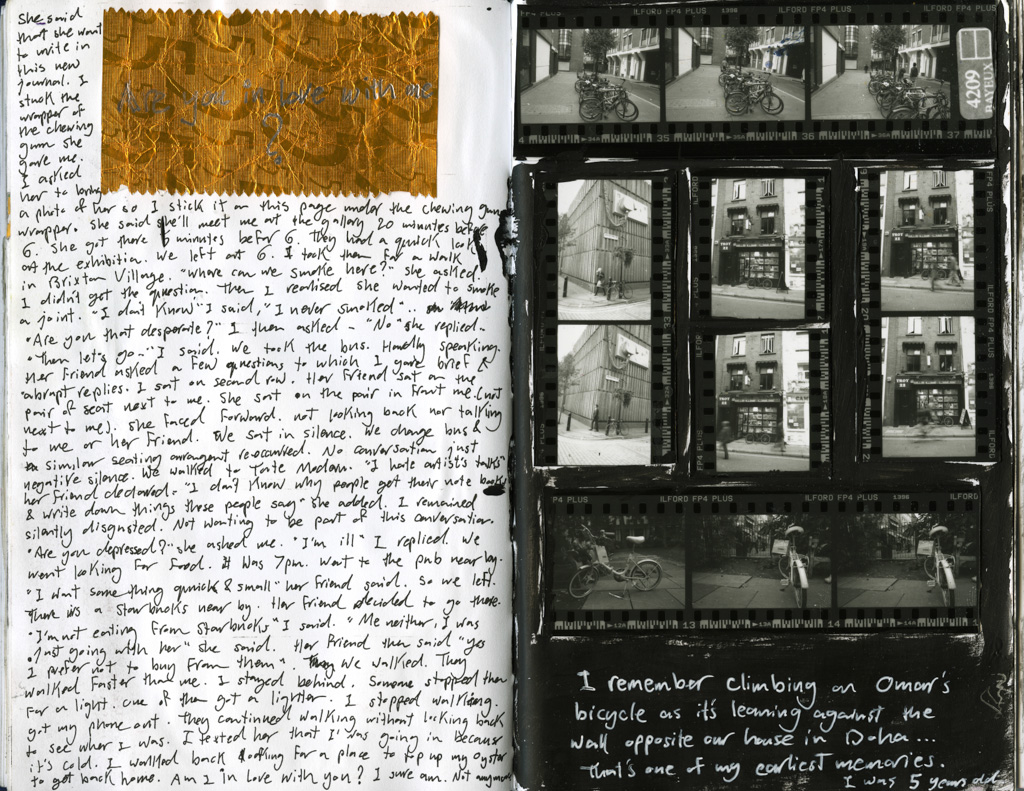 She said
that she want
to write in
this new
journal. I
stuck the
wrapper of
the chewing
gum she
gave me.
I asked
her to bring
a photo of her so I stick it on this page under the chewing gum
wrapper. She said she'll meet me at the gallery 20 minutes before
6. She got there 6 minutes befor 6. They had a quick look
at the exhibition. We left at 6. I took them for a walk
in Brixton Village. "where can we smoke here?" she asked.
I didn't get the question. Then I realised she wanted to smoke
a joint. "I don't know" I said, "I never smoked"..
"Are you that desperate?" I then asked - "No" she replied.
"Then let's go" I said. We took the bus. Hardly speaking.
Her friend asked a few questions to which I gave brief &
abrupt replies. I sat on second row. Her friend sat on the
pair of seat next to me. She sat on the pair in front me (not
next to me). She faced forward. not looking back nor talking
to me or her friend. We sat in silence. We change bus &
similar seating arrangent reoccurred. No conversation just
negative silence. We walked to Tate Modern. "I hate artist's talks"
her friend declared. "I don't know why people get their note books
& write down things these people say" she added. I remained
silantly disgusted. Not wanting to be part of this conversation.
"Are you depressed?" she asked me. "I'm ill" I replied. We
went looking for food. It was 7pm. Went to the pub near by.
"I want some thing quick & small" her friend said. So we left.
There is a Starbucks near by. Her friend decided to go there.
"I'm not eating from Starbucks" I said. "Me neither, I was
just going with her" she said. Her friend then said "yes
I prefer not to buy from them". We walked. They
walked faster than me. I stayed behind. Someone stopped them
for a light. one of them got a lighter. I stopped walking.
got my phone out. They continued walking without looking back
to see wher I was. I texted her that I was going in because
it's cold. I walked back looking for a place to top up my Oyster
to get back home. Am I in love with you? I sure am. Not anymore
Are you in love with me
?
ILFORD FP4 PLUS
ILFORD FP4 PLUS
ILFORD FP4 PLUS
4209
BAYEUX
35
36
37
P4 PLUS
ILFORD FP4 PLUS
1398
ILFORD FP4 PLUS
1398
ILFORD
13
14
I remember climbing on Omar's
bicycle as it's leaning against the
wall opposite our house in Doha...
That's one of my earliest memories.
I was 5 years old